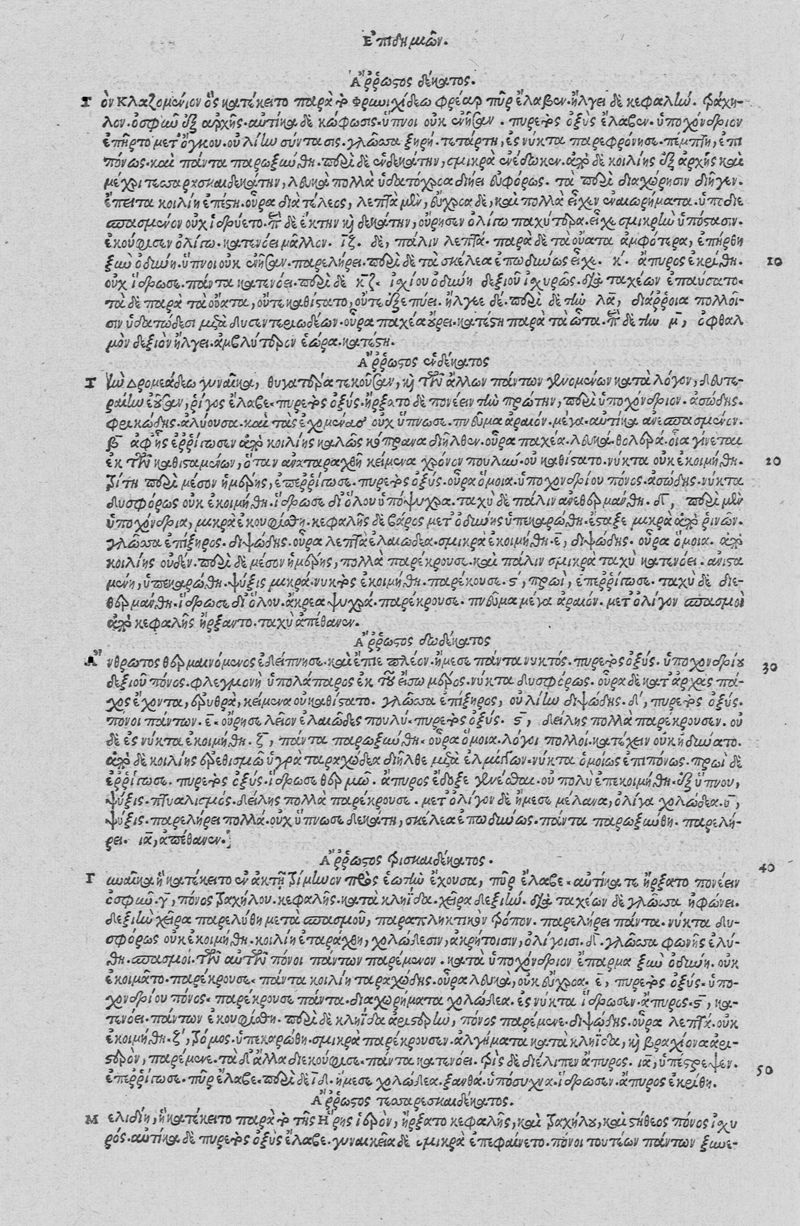 Ἐπιδημιῶν.
Ἄῤῥωστος δέκατος.
Τὸν Κλαζομένιον ὃς κατέκειτο παρὰ τὸ Φρυνιχίδεω φρέαρ πῦρ ἔλαβεν. ἤλγει δὲ κεφαλὴν. τράχη-
λον. ὀσφῦν ἐξ ἀρχῆς. αὐτίκα δὲ κώφωσις. ὕπνοι οὐκ ἐνῆσαν. πυρετὸς ὀξὺς ἔλαβεν. ὑποχόνδριον
ἐπῆρτο μετ' ὄγκου. οὐ λίην σύντασις. γλῶσσα ξηρή. τετάρτῃ, ἐς νύκτα παρεφρόνησε. πέμπτῃ, ἐπι
πόνως. καὶ πάντα παρωξύνθη. περὶ δὲ ἑνδεκάτην, σμικρὰ ἐνέδωκεν. ἀπὸ δὲ κοιλίης ἐξ ἀρχῆς καὶ
μέχρι τεσσαρεσκαιδεκάτην, λεπτὰ πολλὰ ὑδατόχροα διῄει εὐφόρως. τὰ περὶ διαχώρησιν διῆγεν.
ἔπειτα κοιλίη ἐπέστη. οὖρα διατέλεος, λεπτὰ μὲν, εὔχροα δὲ, καὶ πολλὰ εἶχεν ἐναιωρήματα. ὑπεδιε
σπασμένον οὐχ ἱδρύετο. περὶ δὲ ἕκτην καὶ δεκάτην, οὔρησεν ὀλίγῳ παχύτερα. εἶχε σμικρὴν ὑπόστασιν.
ἐκούφισεν ὀλίγῳ. κατενόει μᾶλλον. ιζ. δὲ, πάλιν λεπτά. παρὰ δὲ τὰ οὔατα ἀμφότερα, ἐπήρθη
ξὺν ὀδύνῃ. ὕπνοι οὐκ ἐνῆσαν. παρελήρει. περὶ δὲ τὰ σκέλεα ἐπωδύνως εἶχε. κ. ἄπυρος ἐκρίθη.
οὐχ ἵδρωσε. πάντα κατενόει. περὶ δὲ κζ. ἰσχίου ὀδύνη δεξιοῦ ἰσχυρῶς. διὰ ταχέων ἐπαύσατο.
τὰ δὲ παρὰ τὰ οὔατα, οὔτε καθίστατο, οὔτε ἐξεπύει. ἤλγεε δέ. περὶ δὲ τὴν λα, διάῤῥοια πολλοῖ-
σιν ὑδατώδεσι μετὰ δυσεντεριωδέων. οὖρα παχέα οὔρει. κατέστη παρὰ τὰ ὦτα. περὶ δὲ τὴν μ, ὀφθαλ
μὸν δεξιὸν ἤλγει. ἀμβλύτερον ἑώρα. κατέστη.
Ἄῤῥωστος ἑνδέκατος
Τὴν Δρομεάδεω γυναῖκα, θυγατέρα τεκοῦσαν, καὶ τῶν ἄλλων πάντων γενομένων κατὰ λόγον, δευτε-
ραίην ἐοῦσαν, ῥῖγος ἔλαβε. πυρετὸς ὀξύς. ἤρξατο δὲ πονέειν τὴν πρώτην, περὶ ὑποχόνδριον. ἀσώδης.
φρικώδης. ἀλύουσα. καὶ τὰς ἐχομένας οὐχ ὕπνωσε. πνεῦμα ἀραιόν. μέγα. αὐτίκα ἀνεσπασμένον.
β ἀφ' ἧς ἐῤῥίγωσεν ἀπὸ κοιλίης καλῶς κόπρανα διῆλθεν. οὖρα παχέα. λευκὰ. θολερὰ. οἷα γίνεται
ἐκ τῶν καθισταμένων, ὅταν ἀναταραχθῇ κείμενα χρόνον πουλύν. οὐ καθίστατο. νύκτα οὐκ ἐκοιμήθη.
τρίτῃ περὶ μέσον ἡμέρης, ἐπεῤῥίγωσε. πυρετὸς ὀξύς. οὖρα ὅμοια. ὑποχονδρίου πόνος. ἀσώδης. νύκτα
δυσφόρως οὐκ ἐκοιμήθη. ἵδρωσε δι' ὅλου ὑπόψυχρα. ταχὺ δὲ πάλιν ἀνεθερμάνθη. δ, περὶ μὲν
ὑποχόνδρια, μικρὰ ἐκουφίσθη. κεφαλῆς δὲ βάρος μετ' ὀδύνης. ὑπεκαρώθη. ἔσταξε μικρὰ ἀπὸ ῥινῶν.
γλῶσσα ἐπίξηρος. διψώδης. οὖρα λεπτὰ ἐλαιώδεα. σμικρὰ ἐκοιμήθη. ε, διψώδης. οὖρα ὅμοια. ἀπὸ
κοιλίης οὐδέν. περὶ δὲ μέσον ἡμέρης, πολλὰ παρέκρουσε. καὶ πάλιν σμικρὰ ταχὺ κατενόει. ἀνιστα
μένη, ὑπεκαρώθη. ψύξις μικρά. νυκτὸς ἐκοιμήθη. παρέκρουσε. ϛ, πρωΐ, ἐπεῤῥίγωσε. ταχὺ δὲ διε-
θερμάνθη. ἵδρωσε δι' ὅλου. ἄκρεα ψυχρά. παρέκρουσε. πνεῦμα μέγα ἀραιόν. μετ' ὀλίγον σπασμοὶ
ἀπὸ κεφαλῆς ἤρξαντο. ταχὺ ἀπέθανεν.
Ἄῤῥωστος δωδέκατος
Ἄνθρωπος θερμαινόμενος ἐδείπνησε. καὶ ἔπιε πλέον. ἤμεσε πάντα νυκτός. πυρετὸς ὀξύς. ὑποχονδρίου
δεξιοῦ πόνος. φλεγμονὴ ὑπολάπαρος ἐκ τοῦ εἴσω μέρος. νύκτα δυσφόρως. οὖρα δὲ κατ' ἀρχὰς πά-
χος ἔχοντα, ἐρυθρὰ, κείμενα οὐ καθίστατο. γλῶσσα ἐπίξηρος, οὐ λίην διψώδης. δ', πυρετὸς ὀξύς.
πόνοι πάντων. ε. οὔρησε λεῖον ἐλαιῶδες πουλύ. πυρετὸς ὀξύς. ϛ, δείλης πολλὰ παρέκρουσεν. οὐ
δὲ ἐς νύκτα ἐκοιμήθη. ζ, πάντα παρωξύνθη. οὖρα ὅμοια. λόγοι πολλοί. κατέχειν οὐκ ἠδύνατο.
ἀπὸ δὲ κοιλίης ἐρεθισμῷ ὑγρὰ ταραχώδεα διῆλθε μετὰ ἑλμίνθων. νύκτα ὁμοίως ἐπιπόνως. πρωῒ δὲ
ἐῤῥίγωσε. πυρετὸς ὀξύς. ἵδρωσε θερμῷ. ἄπυρος ἔδοξε γενέσθαι. οὐ πολὺ ἐπεκοιμήθη. ἐξ ὕπνου,
ψύξις. πτυαλισμός. δείλης πολλὰ παρέκρουσε. μετ' ὀλίγον δὲ ἤμεσε μέλανα, ὀλίγα χολώδεα. θ,
ψύξις. παρελήρει πολλά. οὐχ ὕπνωσε. δεκάτῃ, σκέλεα ἐπωδύνως. πάντα παρωξύνθη. παρελή-
ρει. ια, ἀπέθανεν.
Ἄῤῥωστος τρισκαιδέκατος.
Γυναῖκα ἣ κατέκειτο ἐν ἀκτῇ τρίμηνον πρὸς ἑωυτὴν ἔχουσα, πῦρ ἔλαβε. αὐτίκα τε ἤρξατο πονέειν
ὀσφύν. γ, πόνος τραχήλου. κεφαλῆς. κατὰ κληῖδα. χεῖρα δεξιήν. διὰ ταχέων δὲ γλῶσσα ἠφώνει.
δεξιὴν χεῖρα παρελύθη μετὰ σπασμοῦ, παραπληκτικὸν τρόπον. παρελήρει πάντα. νύκτα δυ-
σφόρως οὐκ ἐκοιμήθη. κοιλίη ἐταράχθη, χολώδεσιν, ἀκρήτοισιν, ὀλίγοισι. δ. γλῶσσα φωνῆς ἐλύ-
θη. σπασμοί. τῶν αὐτῶν πόνοι πάντων παρέμενον. κατὰ ὑποχόνδριον ἔπαρμα ξὺν ὀδύνῃ. οὐκ
ἐκοιμᾶτο. παρέκρουσε. πάντα κοιλίη ταραχώδης. οὖρα λεπτὰ, οὐκ εὔχροα. ε, πυρετὸς ὀξύς. ὑπο-
χονδρίου πόνος. παρέκρουσε πάντα. διαχωρήματα χολώδεα. ἐς νύκτα ἵδρωσεν. ἄπυρος. ϛ, κα-
τενόει. πάντων ἐκουφίσθη. περὶ δὲ κληῖδα ἀριστερὴν, πόνος παρέμενε. διψώδης. οὖρα λεπτά. οὐκ
ἐκοιμήθη. ζ', τρόμος. ὑπεκαρώθη. σμικρὰ παρέκρουσεν. ἀλγήματα κατὰ κληῖδα, καὶ βραχίονα ἀρι-
στερὸν, παρέμενε. τὰ δ' ἄλλα διεκούφισε. πάντα κατενόει. τρὶς δὲ διέλιπεν ἄπυρος. ια, ὑπέστρεψεν.
ἐπεῤῥίγωσε. πῦρ ἔλαβε. περὶ δὲ ιδ. ἤμεσε χολώδεα. ξανθὰ. ὑποσυχνά. ἵδρωσεν. ἄπυρος ἐκρίθη.
Ἄῤῥωστος τεσσαρεσκαιδέκατος.
Μελιδίη, ἣ κατέκειτο παρὰ τὸ τῆς Ἥρης ἱερὸν, ἤρξατο κεφαλῆς, καὶ τραχήλου, καὶ στήθεος πόνος ἰσχυ
ρός. αὐτίκα δὲ πυρετὸς ὀξὺς ἔλαβε. γυναικεῖα δὲ σμικρὰ ἐπεφαίνετο. πόνοι τουτέων πάντων ξυνε-
10
20
30
40
50